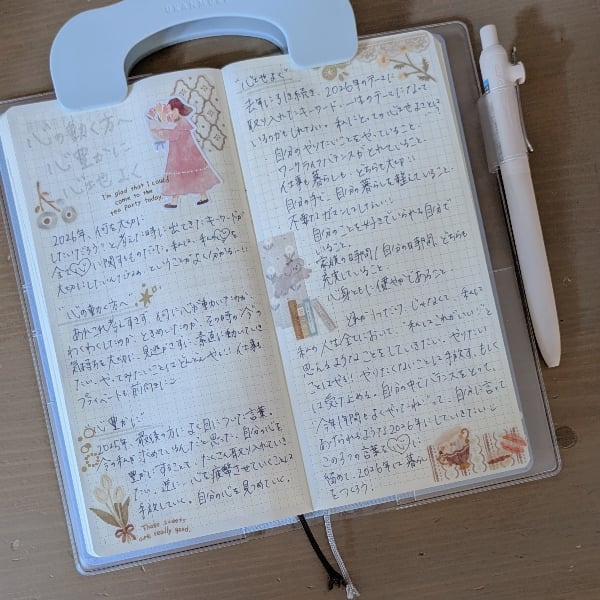 URANMURI
心の動く方へ
心豊かに
心地よく
I'm glad that I could
come to the
tea party today.
2026年、何を大切に
したいだろうと考えた時に出てきたキーワードが
全て♡に関するものだった。私は、私の♡を
大切にしていんだなあ、ということがよく分かる…!!
心の動く方へ
あれこれ考えすぎず、何に心が動いたのか、
わくわくしたのか、ときめいたのか、その時の"今"の
気持ちを大切に、見逃さずに、素直に動いていき
たい。やってみたいことはどんどんやる!!仕事も
プライベートも、前向きに
心豊かに
2025年、最後の方に、よく目についた言葉。
今の私が求めているんだと思った。自分の心を
豊かにすることを、たくさん取り入れていき
たい。逆に、心を疲弊させていくことは
手放していく。自分の心を見つめていく。
These sweets
are really good.
"心地よく"
去年に引き続き、2026年のテーマに
取り入れたキーワード。一生のテーマになって
いるのかもしれない。私にとっての心地よさとは
・自分のやりたいことをやっていること
・ワークライフバランスがとれていること
仕事も暮らしも、どちらも大切に
・自分の手で、自分の暮らしを整えていること
・自分のことを好きでいられる自分で
いること
・家族の時間/自分の時間、どちらも
充実していること
・心身ともに健やかであること
誰かにとって、じゃなくて、私には
私の人生全てにおいて、"私はこれがいい"と
思えるようなことをしていきたい。やりたい
ことはやる!やりたくないことは手放す、もしく
は受け止める。自分の中でバランスをとって、
今年1年間もよくやったね って、自分に言って
あげられるような2026年にしていきたい
この3つの言葉を♡に
留めて、2026年を暮らし
をつくろう。